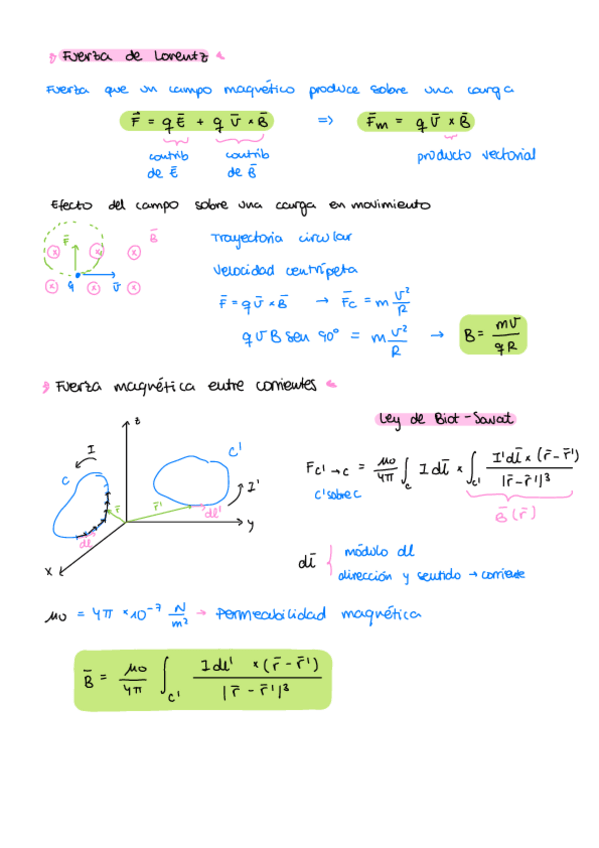 Fuerza de Lorentz
Fuerza que un campo magnético produce sobre una carga
F̄ = q Ē + q v̄ × B̄ => F̄m = q v̄ × B̄
contrib de Ē contrib de B̄ producto vectorial
Efecto del campo sobre una carga en movimiento
F̄ B̄ q v̄
Trayectoria circular
Velocidad centrípeta
F̄ = q v̄ × B̄ → F̄c = m v²/R
q v B sen 90° = m v²/R → B = mv/qR
Fuerza magnética entre corrientes
Ley de Biot-Savat
z I C C' I' r̄ r̄' dl̄ dl̄' y x
F c'→c = μ0/4π ∫c I dl̄ × ∫c' I'dl̄ × (r̄ - r̄')/|r̄ - r̄'|³
c' sobre c
B̄(r̄)
dl̄ { módulo dl
dirección y sentido → corriente
μ0 = 4π × 10⁻⁷ N/m² → Permeabilidad magnética
B̄ = μ0/4π ∫c' I dl' × (r̄ - r̄')/|r̄ - r̄'|³